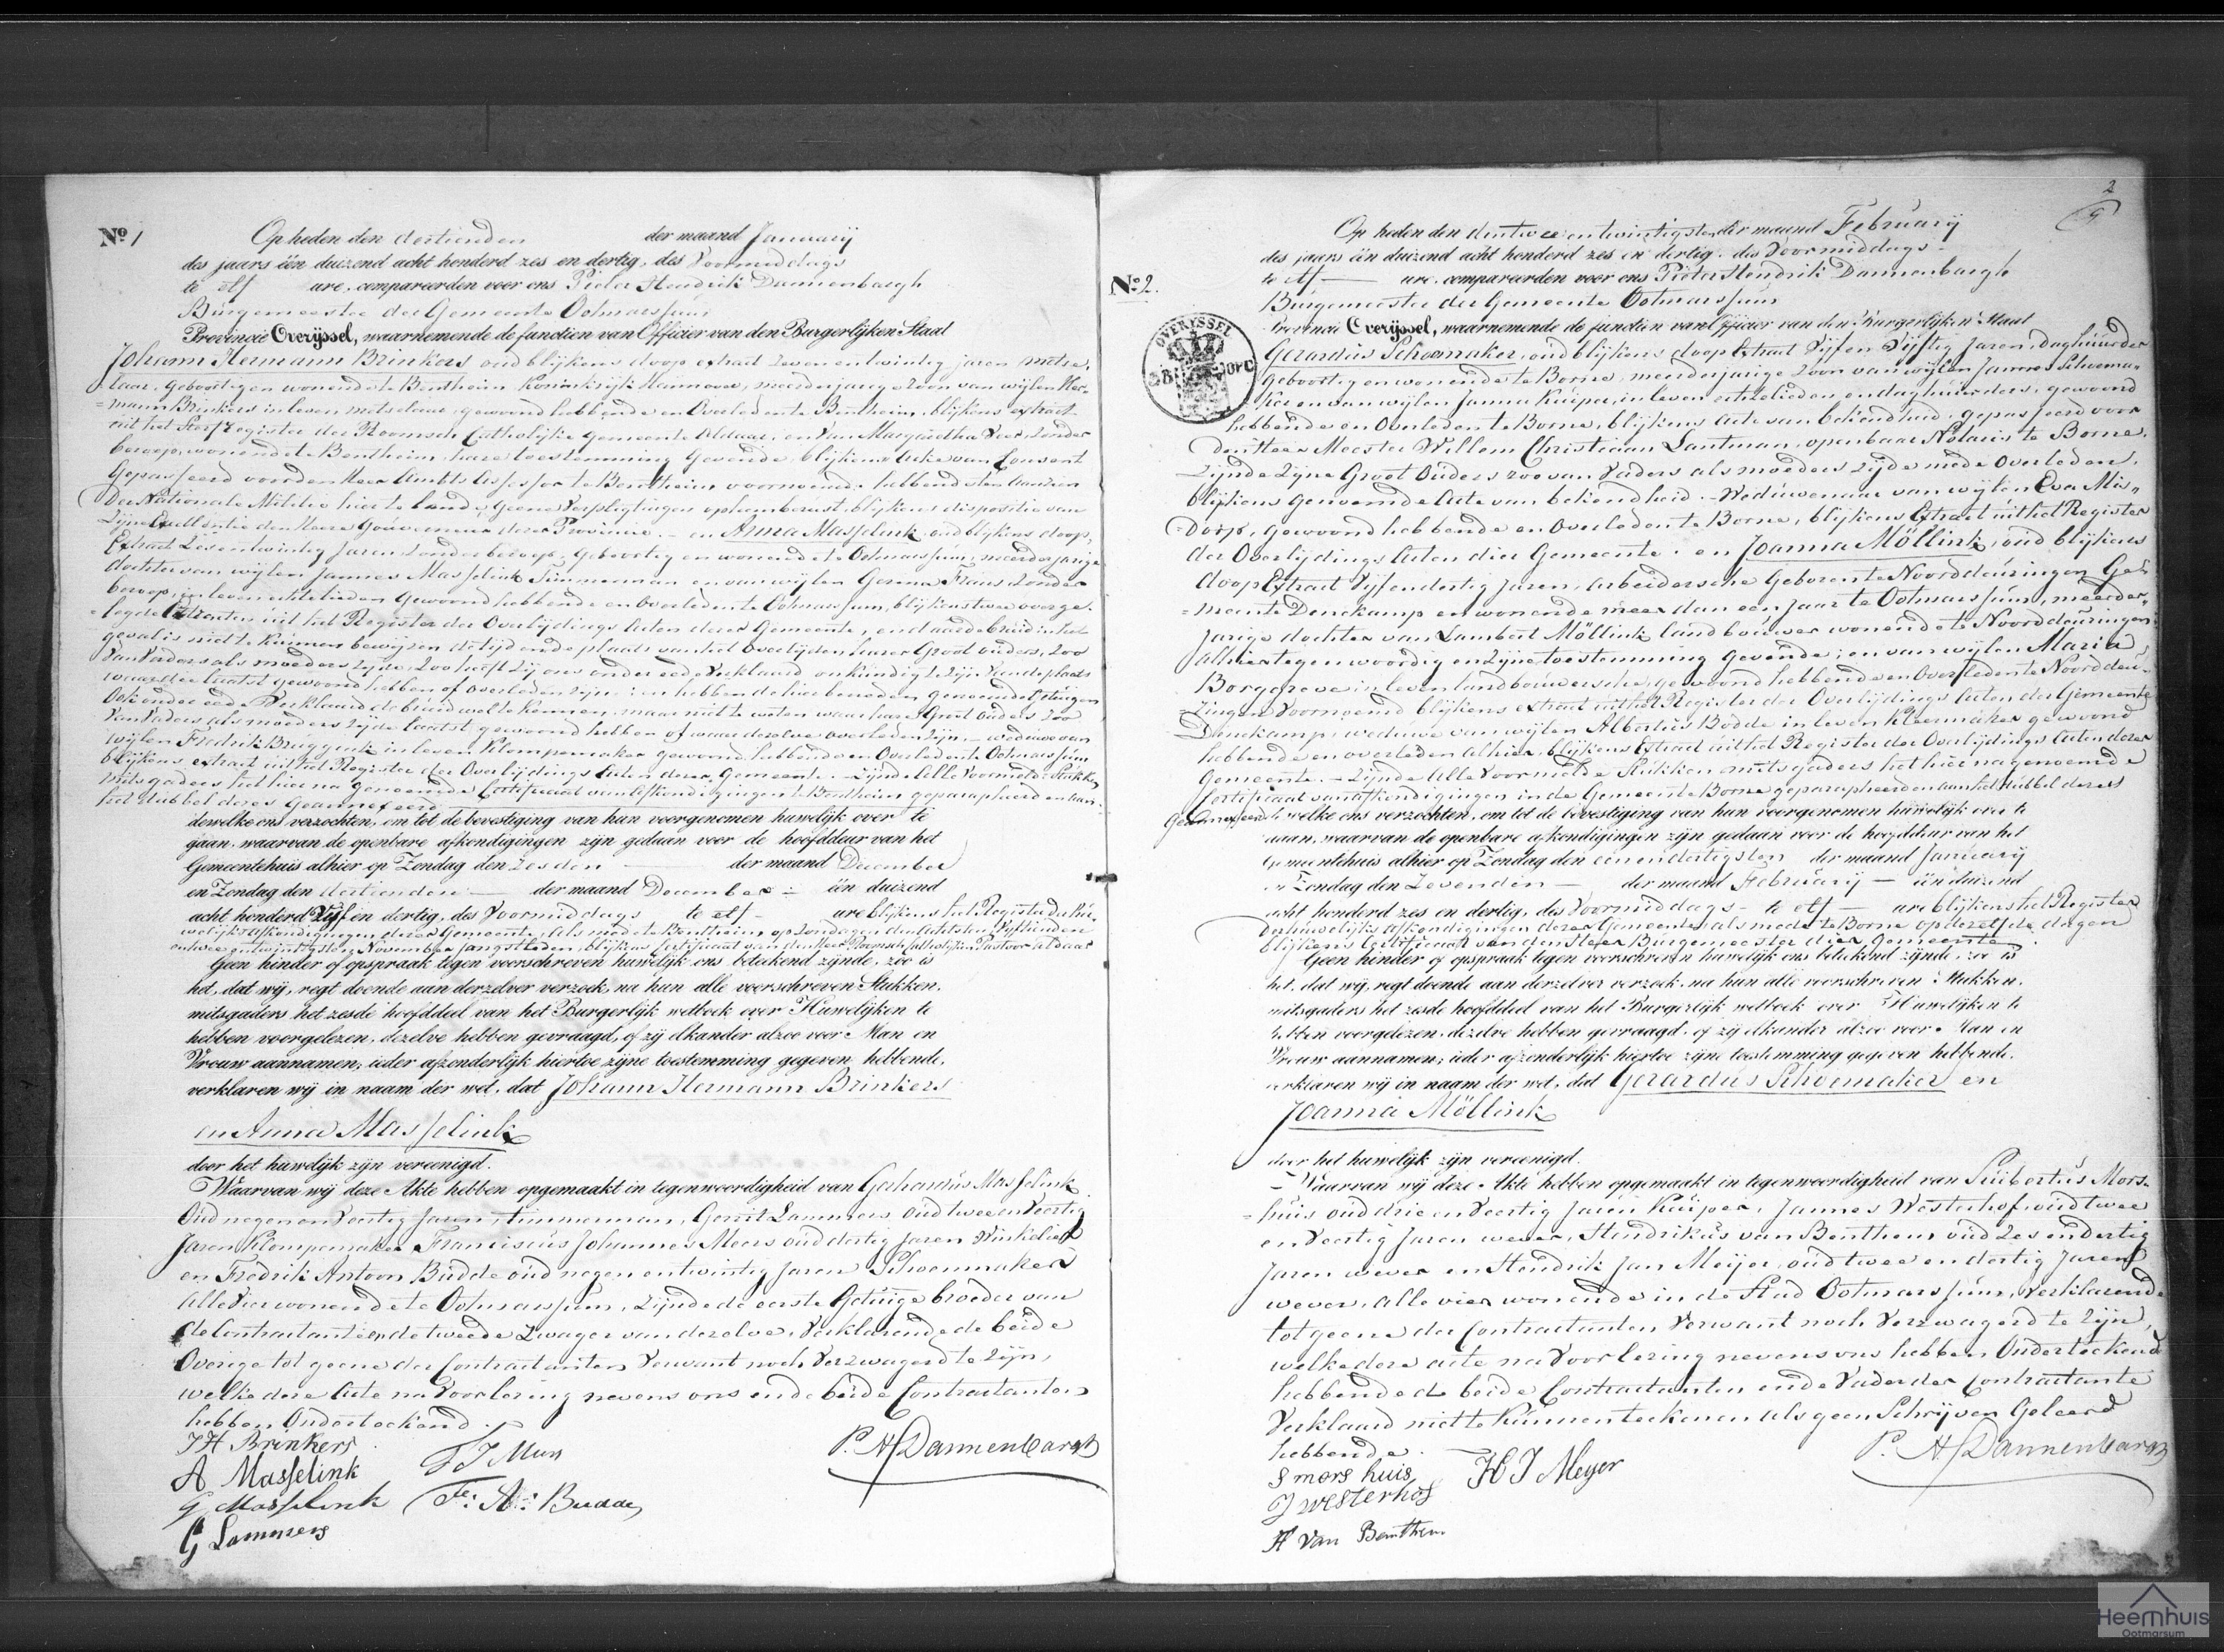 Nº 1
Op heden den dertienden der maand Januarij
des jaars één duizend acht honderd zes en dertig, des Voormiddags
te elf ure, compareerden voor ons Pieter Hendrik Dannenbargh
Burgemeester der Gemeente Ootmarssum
Provincie Overijssel, waarnemende de functien van Officier van den Burgerlijken Staat
Johann Hermann Brinkers oud blijkens doop extract zeven en twintig jaren metse-
laar, geboortig en wonende te Bentheim Koninkrijk Hannover, meerderjarige zoon van wijlen Her-
=mann Brinkers in leven metselaar, gewoond hebbende en Overleden te Bentheim, blijkens extract
uit het Sterf register der Roomsch Catholijke Gemeente Aldaar, en van Margaretha Voer, zonder
beroep, wonende te Bentheim, hare toestemming gevende, blijkens Acte van Consent
gepasseerd voor den Heer Ambts Assessor te Bentheim voornoemd, hebbende ten aanzien
der Nationale Militie hier te lande, geene Verpligtingen op hem berust, blijkens dispositie van
Zijne Excellentie den Heere Gouverneur dezer Provincie. – en Anna Masselink oud blijkens doop,
Extract Zes en twintig Jaren, zonder beroep, geboortig en wonende te Ootmarssum, meerderjarige
dochter van wijlen Jannes Masselink Timmerman en van wijlen Gesina Frans zonder
beroep, in leven echtelieden gewoond hebbende en Overleden te Ootmarssum, blijkens twee overge-
=legde Extracten uit het Register der Overlijdings Acten dezer Gemeente, en daar de bruid in het
geval is niet te kunnen bewijzen de tijd en de plaats van het overlijden harer Groot ouders, zoo
Van Vaders als moeders zijde, Zoo heeft zij ons onder eede Verklaard onkundig te zijn van de plaats
waar dezelaatst gewoond hebben of overleden zijn; en hebben de hier beneden genoemde Getuigen
Ook onder eede Verklaard de bruid wel te kennen, maar niet te weten waar hare Groot ouders zoo
Van Vaders als moeders zijde laatst gewoond hebben of waar dezelve overleden zijn, – weduwe van
wijlen Fredrik Bruggink in leven Klompemaker gewoond hebbende en Overleden te Ootmarssum
blijkens extract uit het Register der Overlijdings Acten dezer Gemeente. – Zijnde Alle voormelde Stukken
mitsgaders het hier na genoemde Certificaat van Afkondigingen te Bentheim geparapheerd en aan
het dubbel dezes geannexeerd
dewelke ons verzochten, om tot de bevestiging van hun voorgenomen huwelijk over te
gaan, waarvan de openbare afkondigingen zijn gedaan voor de hoofddeur van het
Gemeentehuis alhier op Zondag den Zesden der maand December
en Zondag den dertienden der maand December één duizend
acht honderd Vijf en dertig, des Voormiddags te elf ure blijkens het Register der Hu-
welijks afkondigingen dezer Gemeente, Als mede te Bentheim, op Zondagen den Achtsten, Vijftienden
en twee en twintigsten November jongstleden, blijkens Certificaat van den Heer Roomsch Catholijken Pastoor Aldaar
Geen hinder of opspraak tegen voorschreven huwelijk ons bekend zijnde, zoo is
het, dat wij, regt doende aan derzelver verzoek, na hun alle voorschreven Stukken,
mitsgaders het zesde hoofddeel van het Burgerlijk wetboek over Huwelijken te
hebben voorgelezen, dezelve hebben gevraagd, of zij elkander alzoo voor Man en
Vrouw aannamen; ieder afzonderlijk hiertoe zijne toestemming gegeven hebbende,
verklaren wij in naam der wet, dat Johann Hermann Brinkers
en Anna Masselink
door het huwelijk zijn vereenigd.
Waarvan wij deze Akte hebben opgemaakt in tegenwoordigheid van Gerhardus Masselink
Oud negen en Veertig Jaren, timmerman, Gerrit Lammers oud twee en Veertig
Jaren Klompemaker Franciscus Johannes Moers oud dertig Jaren Winkelier
en Fredrik Antoon Budde oud negen en twintig Jaren Schoenmaker
Alle Vier wonende te Ootmarssum, Zijnde de eerste Getuige broeder van
de Contractante en de tweede Zwager van dezelve, Verklarende de beide
Overige tot geene der Contractanten Verwant noch Verzwagerd te zijn,
welke deze Acte na Voorlezing nevens ons en de beide Contractanten
hebben Onderteekend.
JH Brinkers
A Masselink
G Masselink
G Lammers
Fr: A: Budde
P. H. Dannenbargh
2
Nº 2.
OVERYSSEL
Op heden den den twee en twintigsten der maand February
des jaars één duizend acht honderd zes en dertig, des Voormiddags
te elf ure, compareerden voor ons Pieter Hendrik Dannenbargh
Burgemeester der Gemeente Ootmarssum
Provincie Overijssel, waarnemende de functien van Officier van den Burgerlijken Staat
Gerardus Schoemaker, oud blijkens doop Extract Vijf en Vijftig Jaren, Daghuurder
geboortig en wonende te Borne, meerderjarige Zoon van wijlen Jannes Schoema=
ker en van wijlen Janna Kuiper, in leven echtelieden en daghuurders, gewoond
hebbende en Overleden te Borne, blijkens Acte van bekendheid, gepasseerd voor
den Heer Meester Willem Christiaan Lantman, openbaar Notaris te Borne,
Zijnde Zijne Groot Ouders zoo van Vaders als moeders zijde mede Overleden,
blijkens genoemde Acte van bekendheid. – Weduwenaar van wijlen Eva Mis=
=dorp, gewoond hebbende en Overleden te Borne, blijkens Extract uit het Register
der Overlijdings Acten dier Gemeente. en Joanna Möllink, oud blijkens
doop Extract Vijf en dertig Jaren, Arbeidersche Geboren te Noorddeuringen Ge=
=meente Denekamp en wonende meer dan een Jaar te Ootmarssum, meerder=
jarige dochter van Lambert Möllink landbouwer wonende te Noorddeuringen
Alhier tegenwoordig en zijne toestemming gevende; en van wijlen Maria
Borggreve in leven landbouwersche, gewoond hebbende en Overleden te Noorddeu-
ringen Voornoemd blijkens extract uit het Register der Overlijdings Acten der Gemeente
Denekamp, weduwe van wijlen Albertus Bodde in leven Kleermaker gewoond
hebbende en overleden alhier, blijkens Extract uit het Register der Overlijdings Acten dezer
Gemeente. – Zijnde Alle Voormelde Stukken mitsgaders het hier na genoemde
Certificaat van afkondigingen in de Gemeente Borne geparapheerd en aan het dubbel dezes
Geannexeerd dewelke ons verzochten, om tot de bevestiging van hun voorgenomen huwelijk over te
gaan, waarvan de openbare afkondigingen zijn gedaan voor de hoofddeur van het
Gemeentehuis alhier op Zondag den een en dertigsten der maand January
en Zondag den Zevenden der maand February één duizend
acht honderd zes en dertig, des Voormiddags te elf ure blijkens het Register
der huwelijks afkondigingen dezer Gemeente, als mede te Borne op dezelfde dagen
blijkens Certificaat van den Heer Burgemeester dier Gemeente
Geen hinder of opspraak tegen voorschreven huwelijk ons bekend zijnde, zoo is
het, dat wij, regt doende aan derzelver verzoek, na hun alle voorschreven Stukken,
mitsgaders het zesde hoofddeel van het Burgerlijk wetboek over Huwelijken te
hebben voorgelezen, dezelve hebben gevraagd, of zij elkander alzoo voor Man en
Vrouw aannamen; ieder afzonderlijk hiertoe zijne toestemming gegeven hebbende,
verklaren wij in naam der wet, dat Gerardus Schoemaker en
Joanna Möllink
door het huwelijk zijn vereenigd.
Waarvan wij deze Akte hebben opgemaakt in tegenwoordigheid van Suibertus Mors-
=huis oud drie en Veertig Jaren Kuiper, Jannes Westerhof oud twee
en Veertig Jaren wever, Hendrikus van Benthem oud Zes en dertig
Jaren wever en Hendrik Jan Meijer, oud twee en dertig Jaren
wever, Alle vier wonende in de Stad Ootmarssum, Verklarende
tot geene der Contractanten Verwant noch Verzwagerd te zijn,
welke deze Acte na Voorlezing nevens ons hebben Onderteekend
hebbende de beide Contractanten en de Vader der Contractante
Verklaard niet te kunnen teekenen als geen Schrijven Geleerd
hebbende.
S mors huis
J westerhof
H van Benthem
H J Meyer
P. H. Dannenbargh
Heemhuis
Ootmarsum